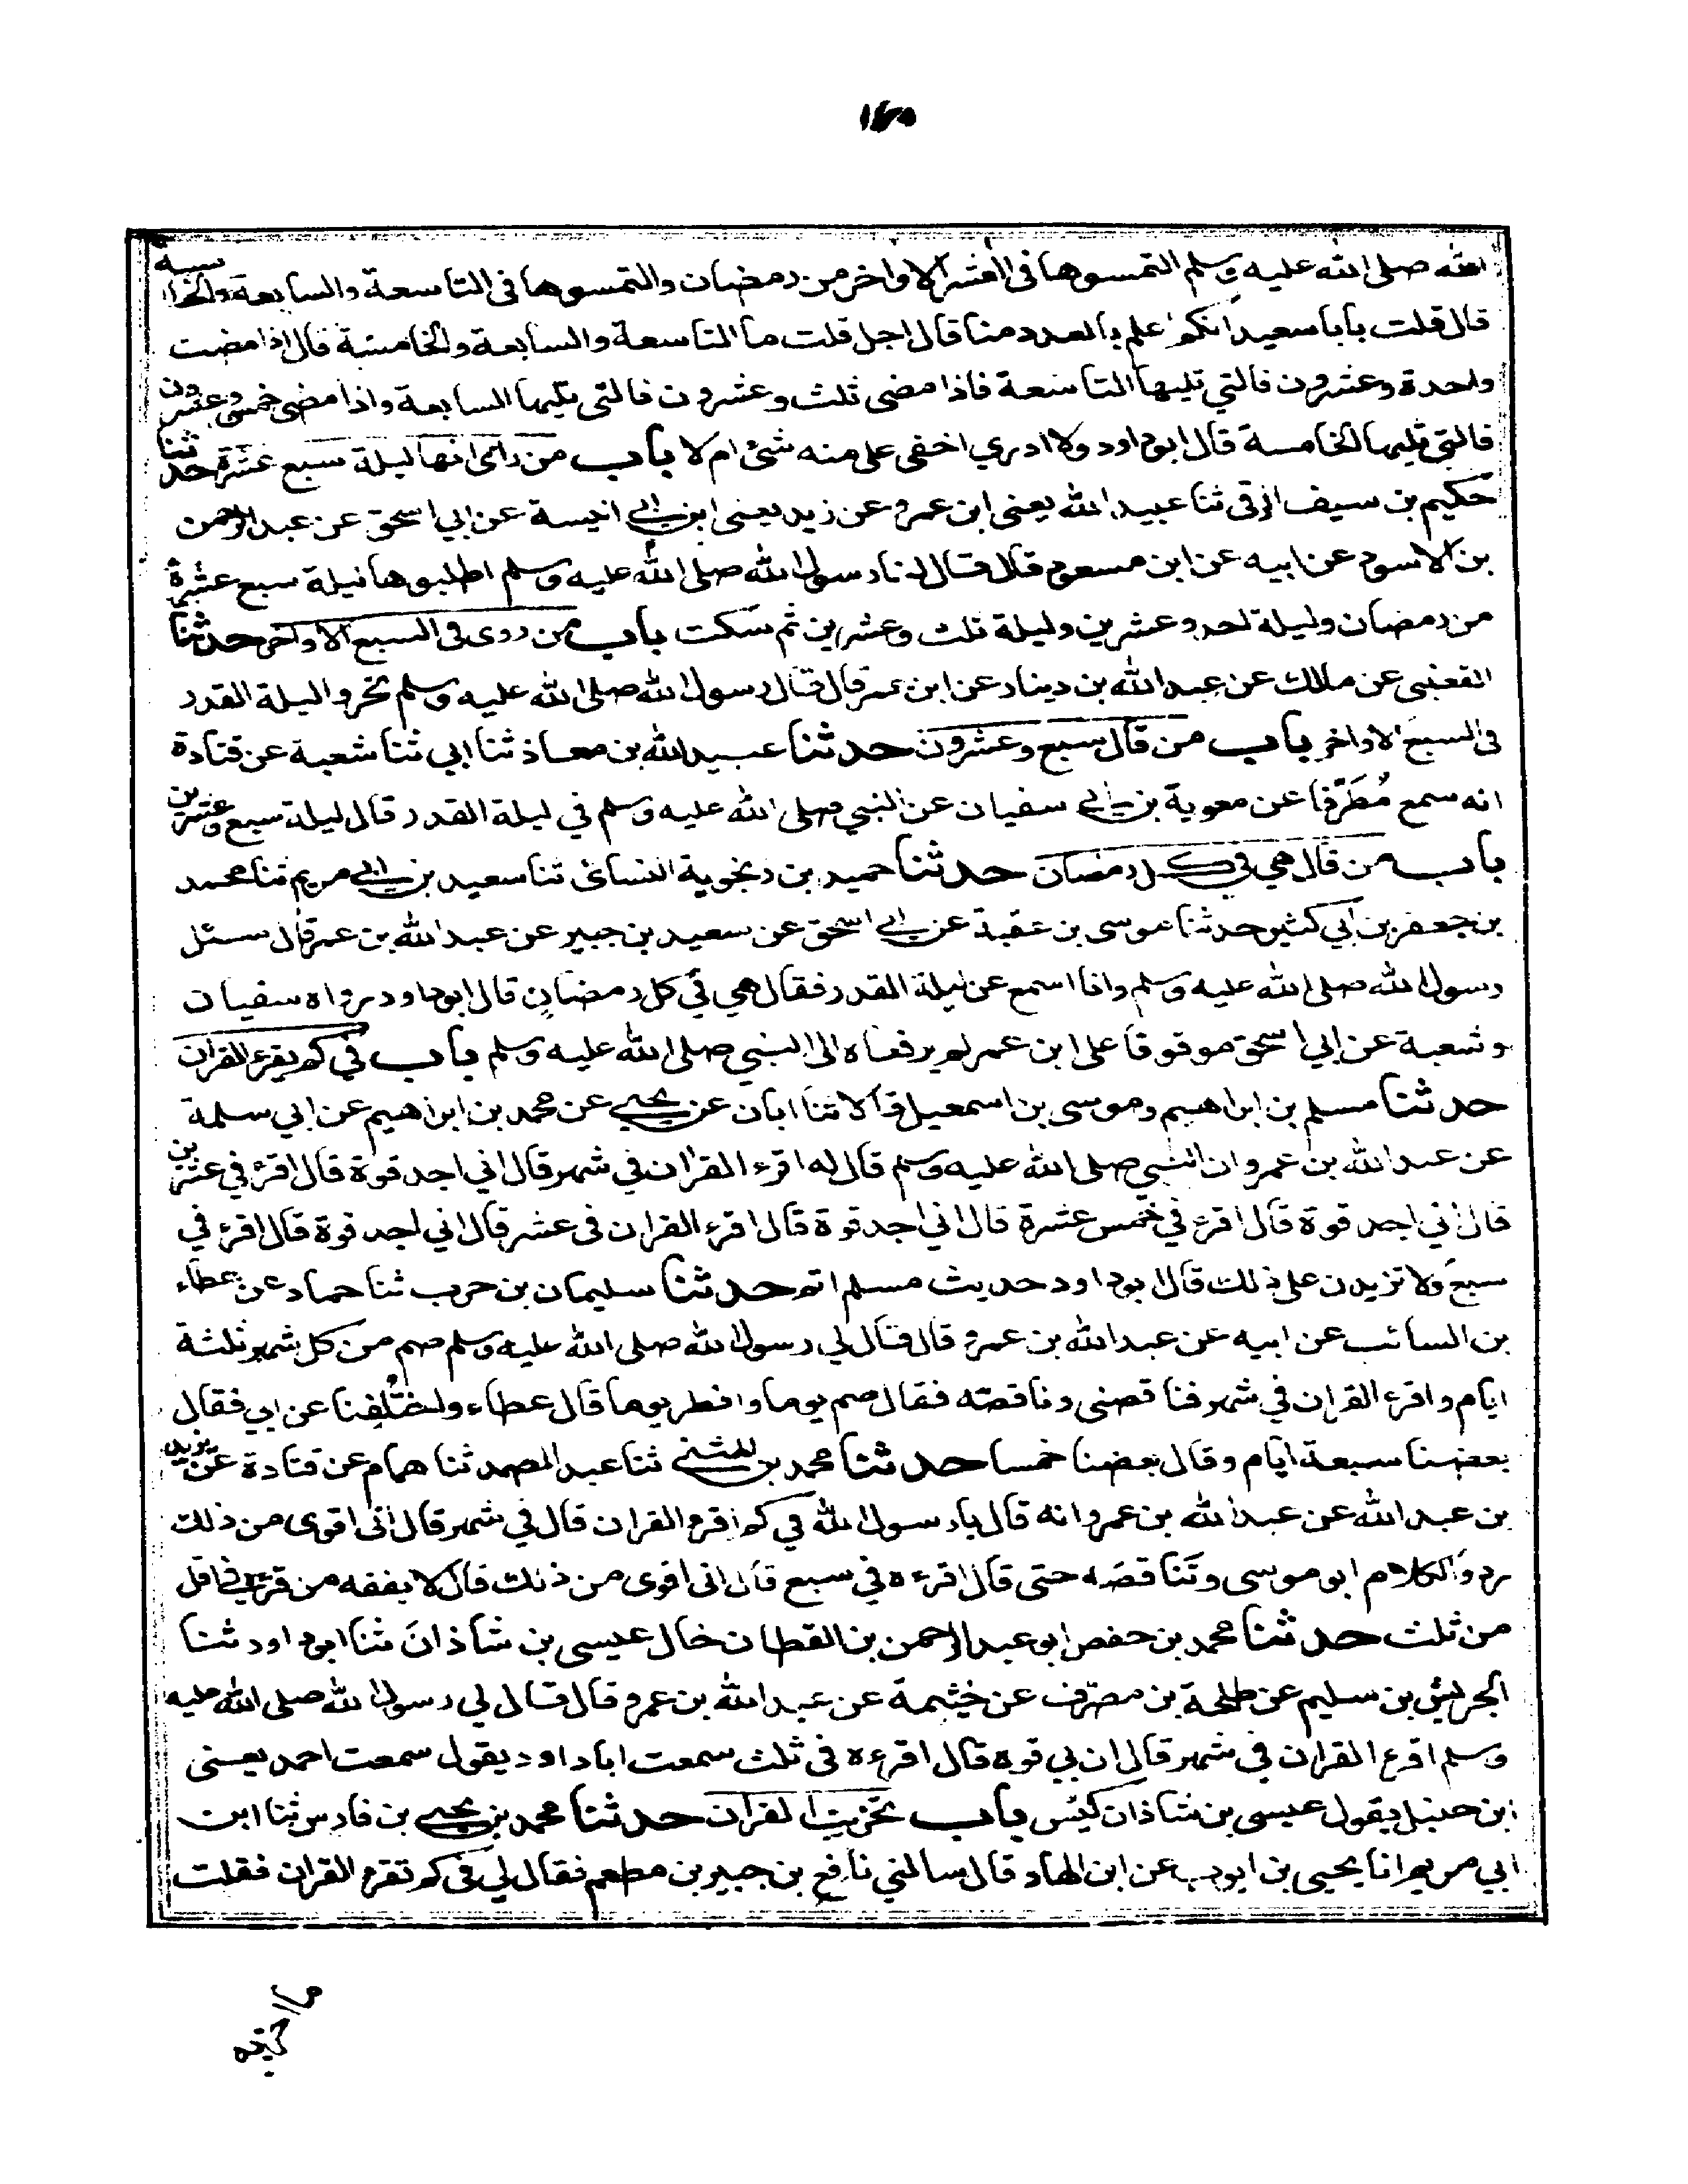 ١٤٥
الله صلى الله عليه وسلم التمسوها فى العشر الاواخر من رمضان والتمسوها فى التاسعة والسابعة والخامسة
قال قلت يابا سعيد انكم اعلم بالعدد منا قال اجل قلت ما التاسعة والسابعة والخامسة قال اذا مضت
واحدة وعشرون فالتي تليها التاسعة فاذا مضى ثلث وعشرون فالتى تليها السابعة واذا مضى خمس وعشرون
فالتى تليها الخامسة قال ابو داود ولا ادري اخفى على منه شئ ام لا باب من راى انها ليلة سبع عشرة حدثنا
حكيم بن سيف الرقى ثنا عبيد الله يعنى ابن عمرو عن زيد يعنى ابن ابي انيسة عن ابي اسحق عن عبد الرحمن
بن الاسود عن ابيه عن ابن مسعود قال قال لنا رسول الله صلى الله عليه وسلم اطلبوها ليلة سبع عشرة
من رمضان وليلة احد وعشرين وليلة ثلث وعشرين ثم سكت باب من روى فى السبع الاواخر حدثنا
القعنبى عن ملالك عن عبد الله بن دينار عن ابن عمر قال قال رسول الله صلى الله عليه وسلم تحروا ليلة القدر
فى السبع الاواخر باب من قال سبع وعشرون حدثنا عبيد الله بن معاذ ثنا ابي ثنا شعبة عن قتادة
انه سمع مُطَرِّفا عن معوية بن ابي سفيان عن النبي صلى الله عليه وسلم في ليلة القدر قال ليلة سبع وعشرين
باب من قال هي في كل رمضان حدثنا حميد بن زنجوية النسائى ثنا سعيد بن ابي مريم ثنا محمد
بن جعفر بن ابي كثير حدثنا موسى بن عقبة عن ابي اسحق عن سعيد بن جبير عن عبد الله بن عمر قال سئل
رسول الله صلى الله عليه وسلم وانا اسمع عن ليلة القدر فقال هي في كل رمضان قال ابو داود رواه سفيان
وشعبة عن ابي اسحق موقوفا على ابن عمر لم يرفعاه الى النبي صلى الله عليه وسلم باب في كم يقرء القران
حدثنا مسلم بن ابراهيم وموسى بن اسمعيل قالا ثنا ابان عن يحيى عن محمد بن ابراهيم عن ابي سلمة
عن عبد الله بن عمرو ان النبي صلى الله عليه وسلم قال له اقرء القران في شهر قال اني اجد قوة قال اقرء في عشرين
قال اني اجد قوة قال اقرء في خمس عشرة قال اني اجد قوة قال اقرء القران فى عشر قال اني اجد قوة قال اقرء في
سبع ولا تزيدن على ذلك قال ابو داود حديث مسلم اتم حدثنا سليمان بن حرب ثنا حماد عن عطاء
بن السائب عن ابيه عن عبد الله بن عمرو قال قال لي رسول الله صلى الله عليه وسلم صم من كل شهر ثلثة
ايام واقرء القران في شهر فناقصنى وناقصته فقال صم يوما وافطر يوما قال عطاء واختلفنا عن ابي فقال
بعضنا سبعة ايام وقال بعضنا خمسا حدثنا محمد بن المثنى ثنا عبد الصمد ثنا همام عن قتادة عن يزيد
بن عبد الله عن عبد الله بن عمرو انه قال يا رسول الله في كم اقرء القران قال في شهر قال انى اقوى من ذلك
ردد الكلام ابو موسى وتناقصه حتى قال اقرءه في سبع قال انى اقوى من ذلك قال لا يفقه من قرءه في اقل
من ثلث حدثنا محمد بن حفص ابو عبد الرحمن بن القطان خال عيسى بن شاذان ثنا ابو داود ثنا
الحريش بن سليم عن طلحة بن مصرف عن خيثمة عن عبد الله بن عمرو قال قال لي رسول الله صلى الله عليه
وسلم اقرء القران في شهر قال ان بي قوة قال اقرءه فى ثلث سمعت ابا داود يقول سمعت احمد يعنى
ابن حنبل يقول عيسى بن شاذان كيّس باب تحزيب القران حدثنا محمد بن يحيى بن فارس ثنا ابن
ابي مريم انا يحيى بن ايوب عن ابن الهاد قال سالني نافع بن جبير بن مطعم فقال لي فى كم تقرء القران فقلت